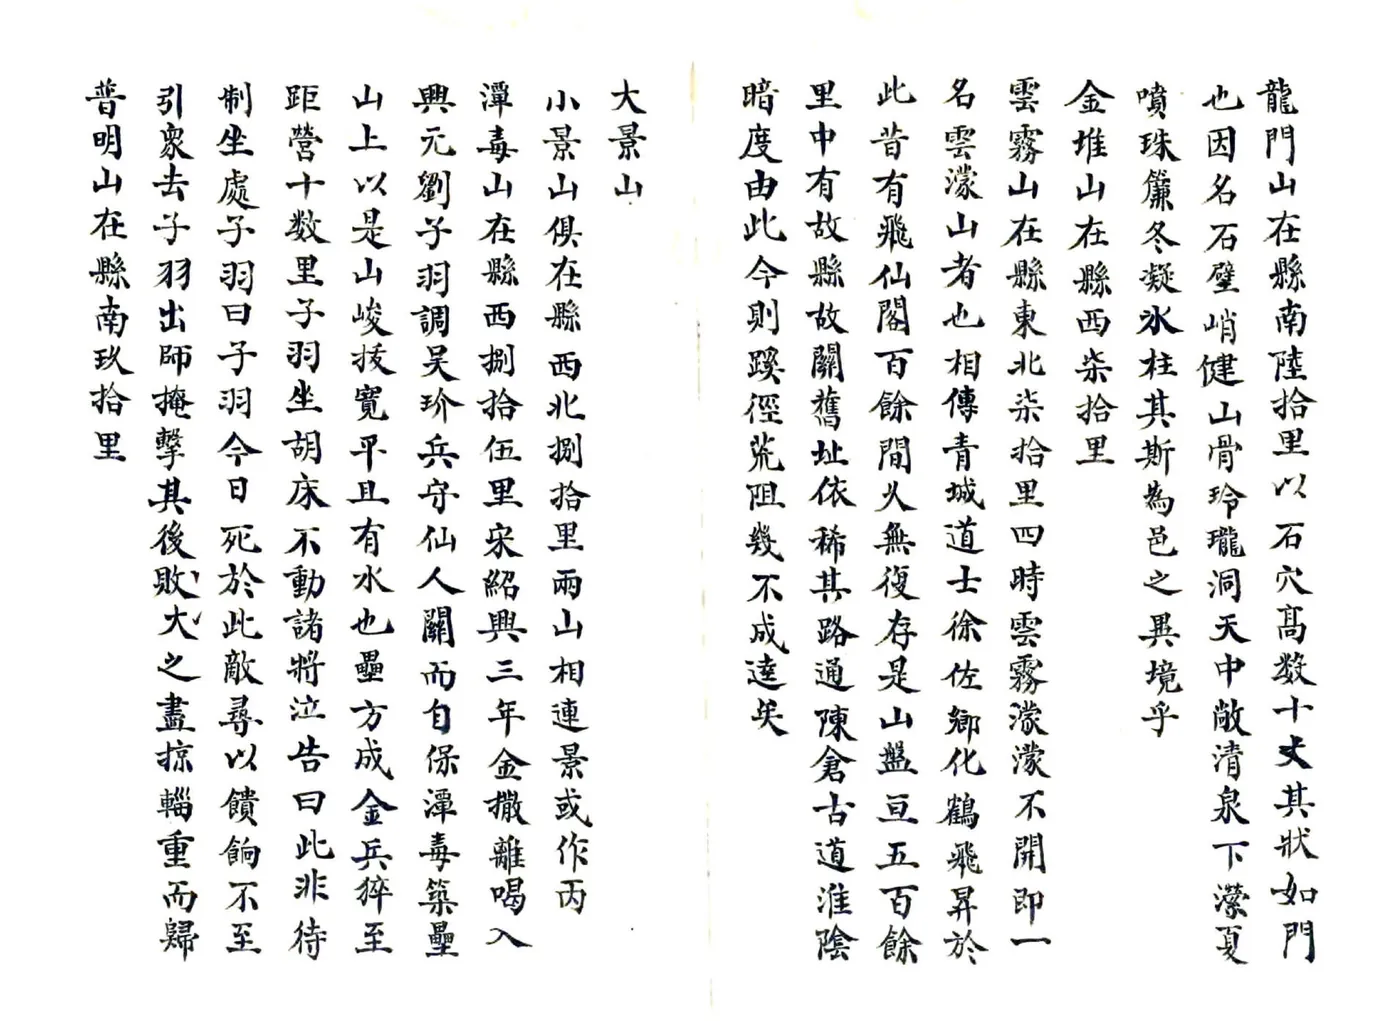 龍門山在縣南陸拾里以石穴高数十丈其狀如門
也因名石壁峭健山骨玲瓏洞天中敞清泉下濴夏
噴珠簾冬凝氷柱其斯為邑之異境乎
金堆山在縣西柒拾里
雲霧山在縣東北柒拾里四時雲霧濛濛不開即一
名雲濛山者也相傳青城道士徐佐鄉化鶴飛昇於
此昔有飛仙閣百餘間乆無復存是山盤亘五百餘
里中有故縣故關舊址依稀其路通陳倉古道淮陰
暗度由此今則蹊徑荒阻幾不成逹矣
大景山
小景山俱在縣西北捌拾里兩山相連景或作丙
潭毒山在縣西捌拾伍里宋紹興三年金撒離喝入
興元劉子羽調吴玠兵守仙人關而自保潭毒築壘
山上以是山峻拔寬平且有水也壘方成金兵猝至
距營十数里子羽坐胡床不動諸將泣告曰此非待
制坐處子羽曰子羽今日死於此敵尋以饋餉不至
引衆去子羽出師掩擊其後敗大之盡掠輜重而歸
普明山在縣南玖拾里